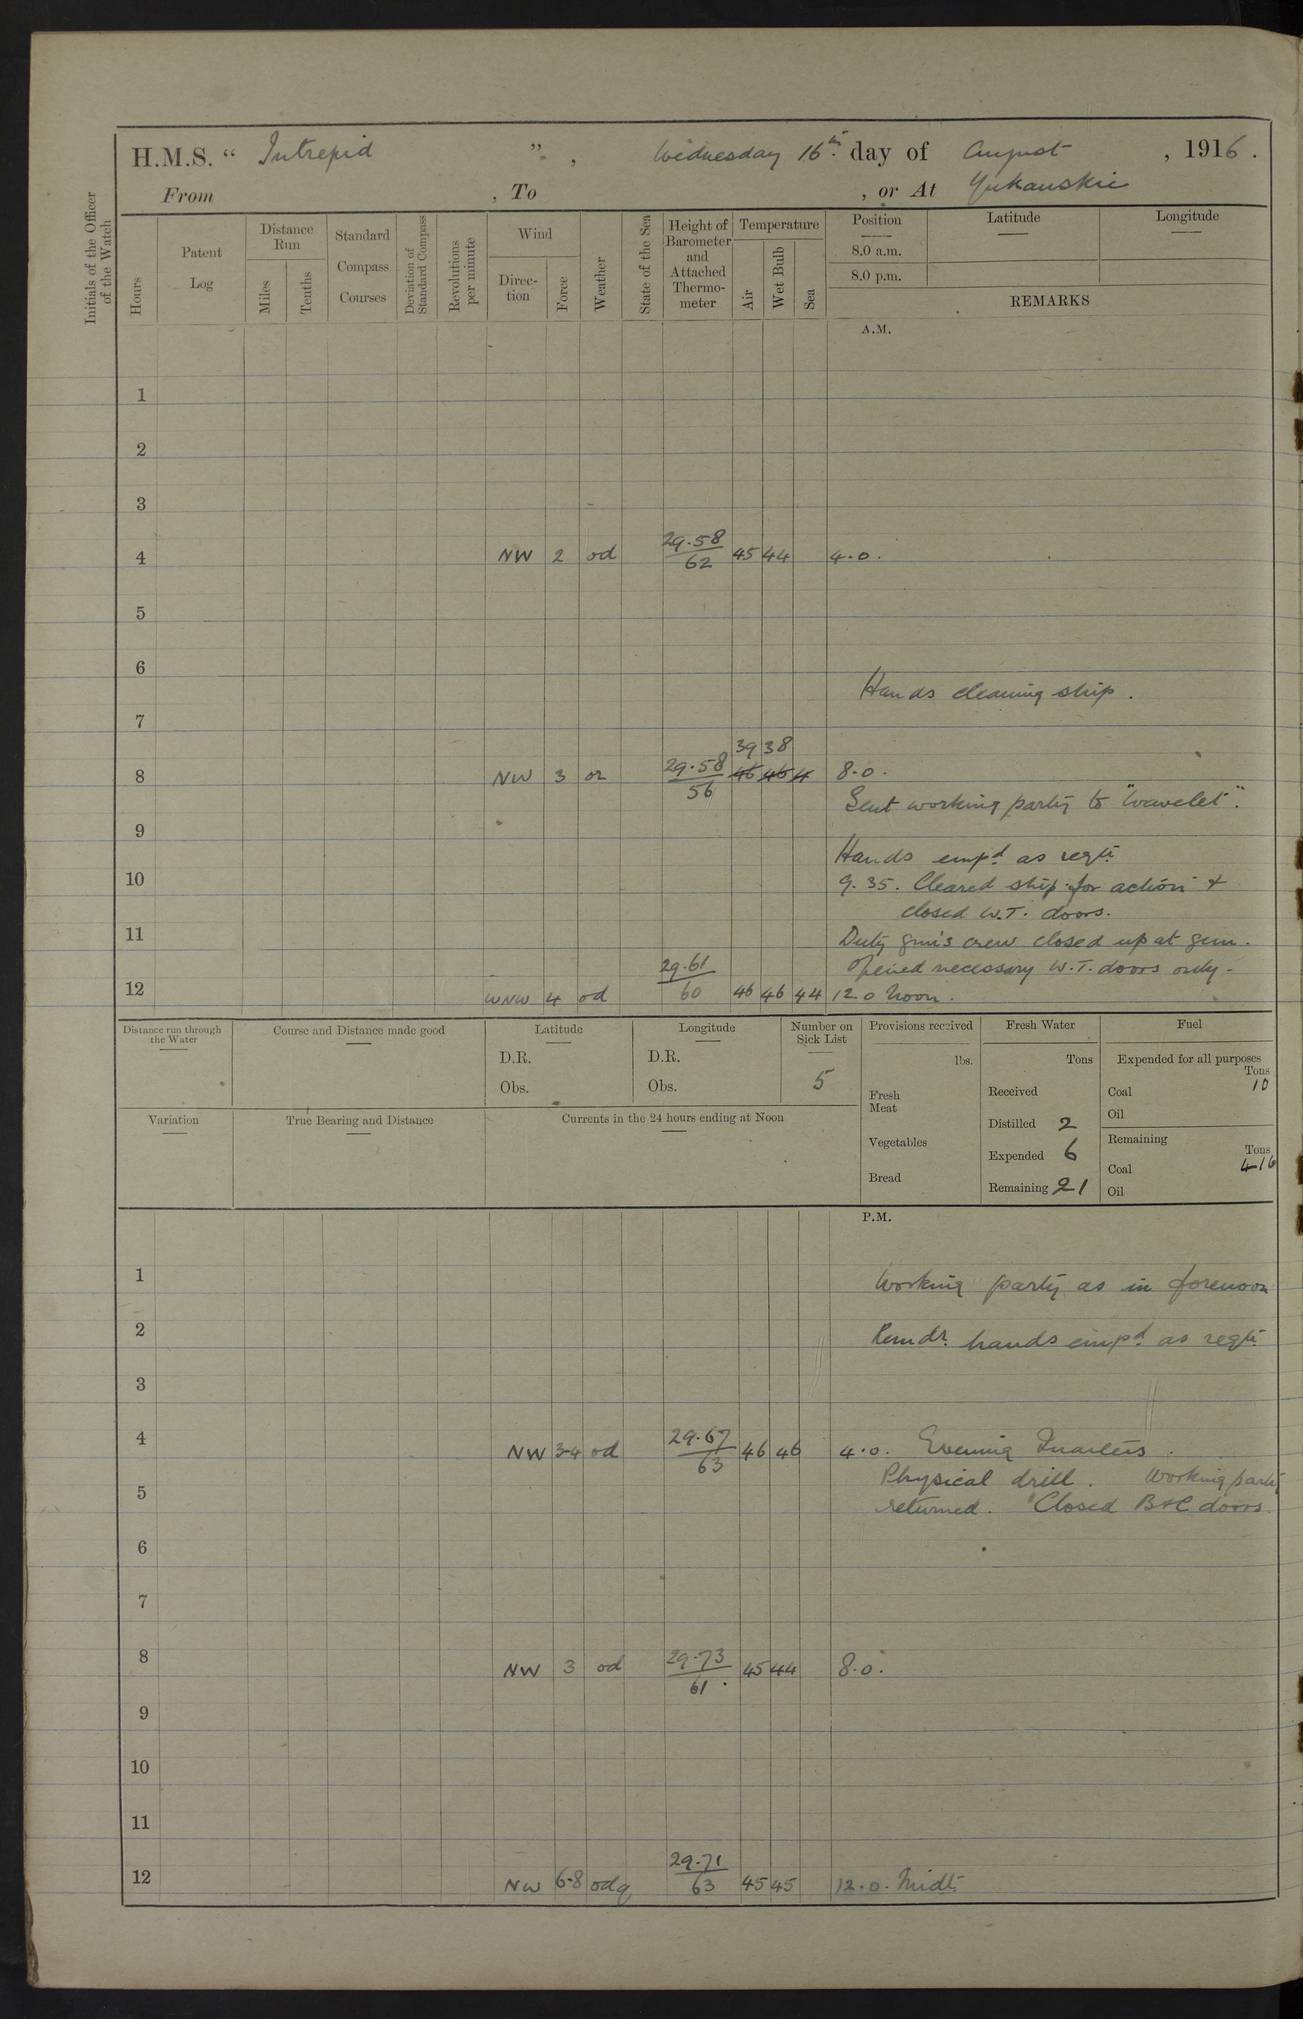 H.M.S. “ Intrepid ” , Wednesday 16th. day of August , 1916 .
From , To , or At Yukanskie
Initials of the Officer of the Watch
Hours
Patent Log
Distance Run
Miles
Tenths
Standard Compass Courses
Deviation of Standard Compass
Revolutions per minute
Wind
Direc-tion
Force
Weather
State of the Sea
Height of Barometer and Attached Thermo-meter
Temperature
Air
Wet Bulb
Sea
Position
8.0 a.m.
8.0 p.m.
Latitude
Longitude
REMARKS
A.M.
1
2
3
4 NW 2 od 29.58/62 45 44 4.0.
5
6
Hands cleaning ship.
7
39 38
8 NW 3 or 29.58/56 46 45 4 8.0.
Sent working party to "Wavelet".
9
Hands emp.d as reqte
10 9.35. Cleared ship for action &
closed W.T. doors.
11 Duty gun's crew closed up at gun.
Opened necessary W.T. doors only.
12 WNW 4 od 29.61/60 46 46 44 12.0 Noon.
Distance run through the Water
Course and Distance made good
Latitude
D.R.
Obs.
Longitude
D.R.
Obs.
Number on Sick List
5
Provisions received
lbs.
Fresh Meat
Vegetables
Bread
Fresh Water
Tons
Received
Distilled 2
Expended 6
Remaining 21
Fuel
Expended for all purposes
Tons
Coal 10
Oil
Remaining
Tons
Coal 416
Oil
Variation
True Bearing and Distance
Currents in the 24 hours ending at Noon
P.M.
1 Working party as in forenoon
2 Remdr. hands emp.d as reqte
3
4 NW 3-4 od 29.67/63 46 46 4.0. Evening Quarters.
Physical drill. Working party
5 returned. Closed B&C doors.
6
7
8 NW 3 od 29.73/61. 45 44 8.0.
9
10
11
12 NW 6-8 odq 29.71/63 45 45 12.0. Midt.